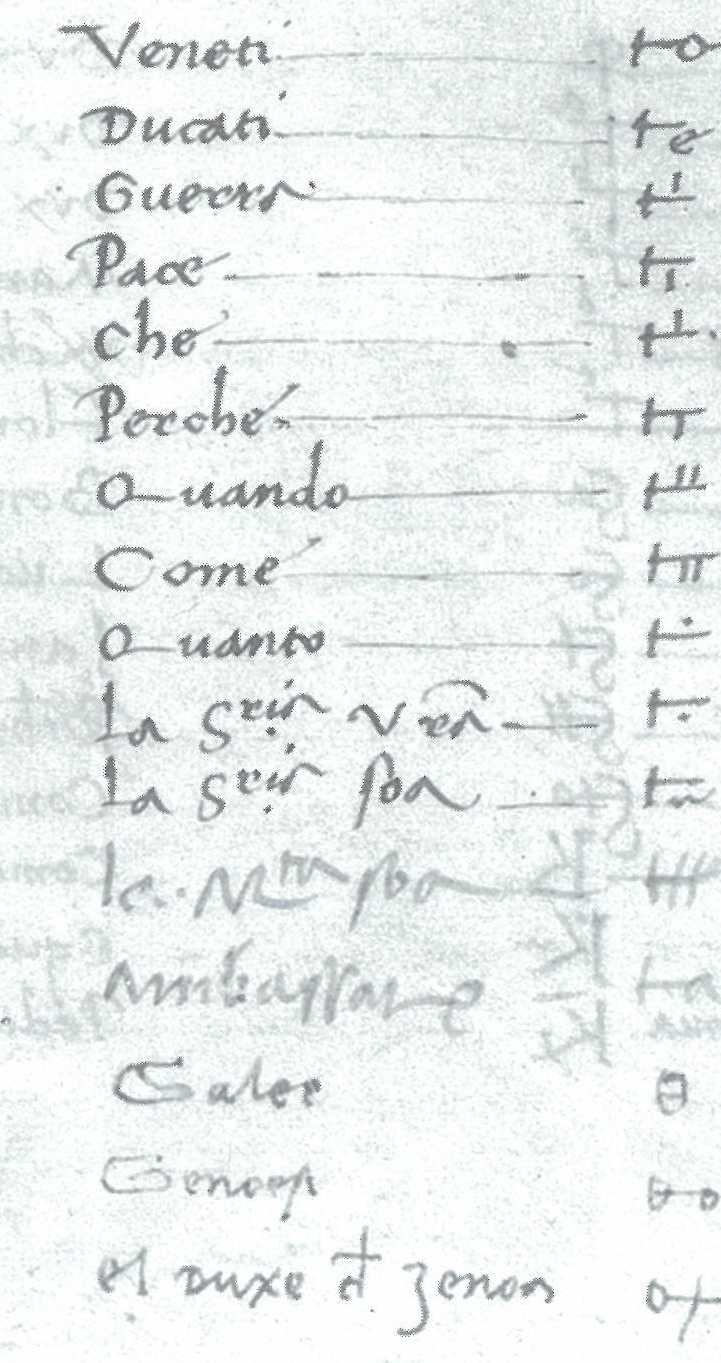 Veneti
Ducati
Guerra
Pace
Che
Perche
Quando
Come
Quanto
La S^ria v̄ra
La S^ria soa
la M^ta soa
Galee
Genoesi
el duxe đ Zenoa